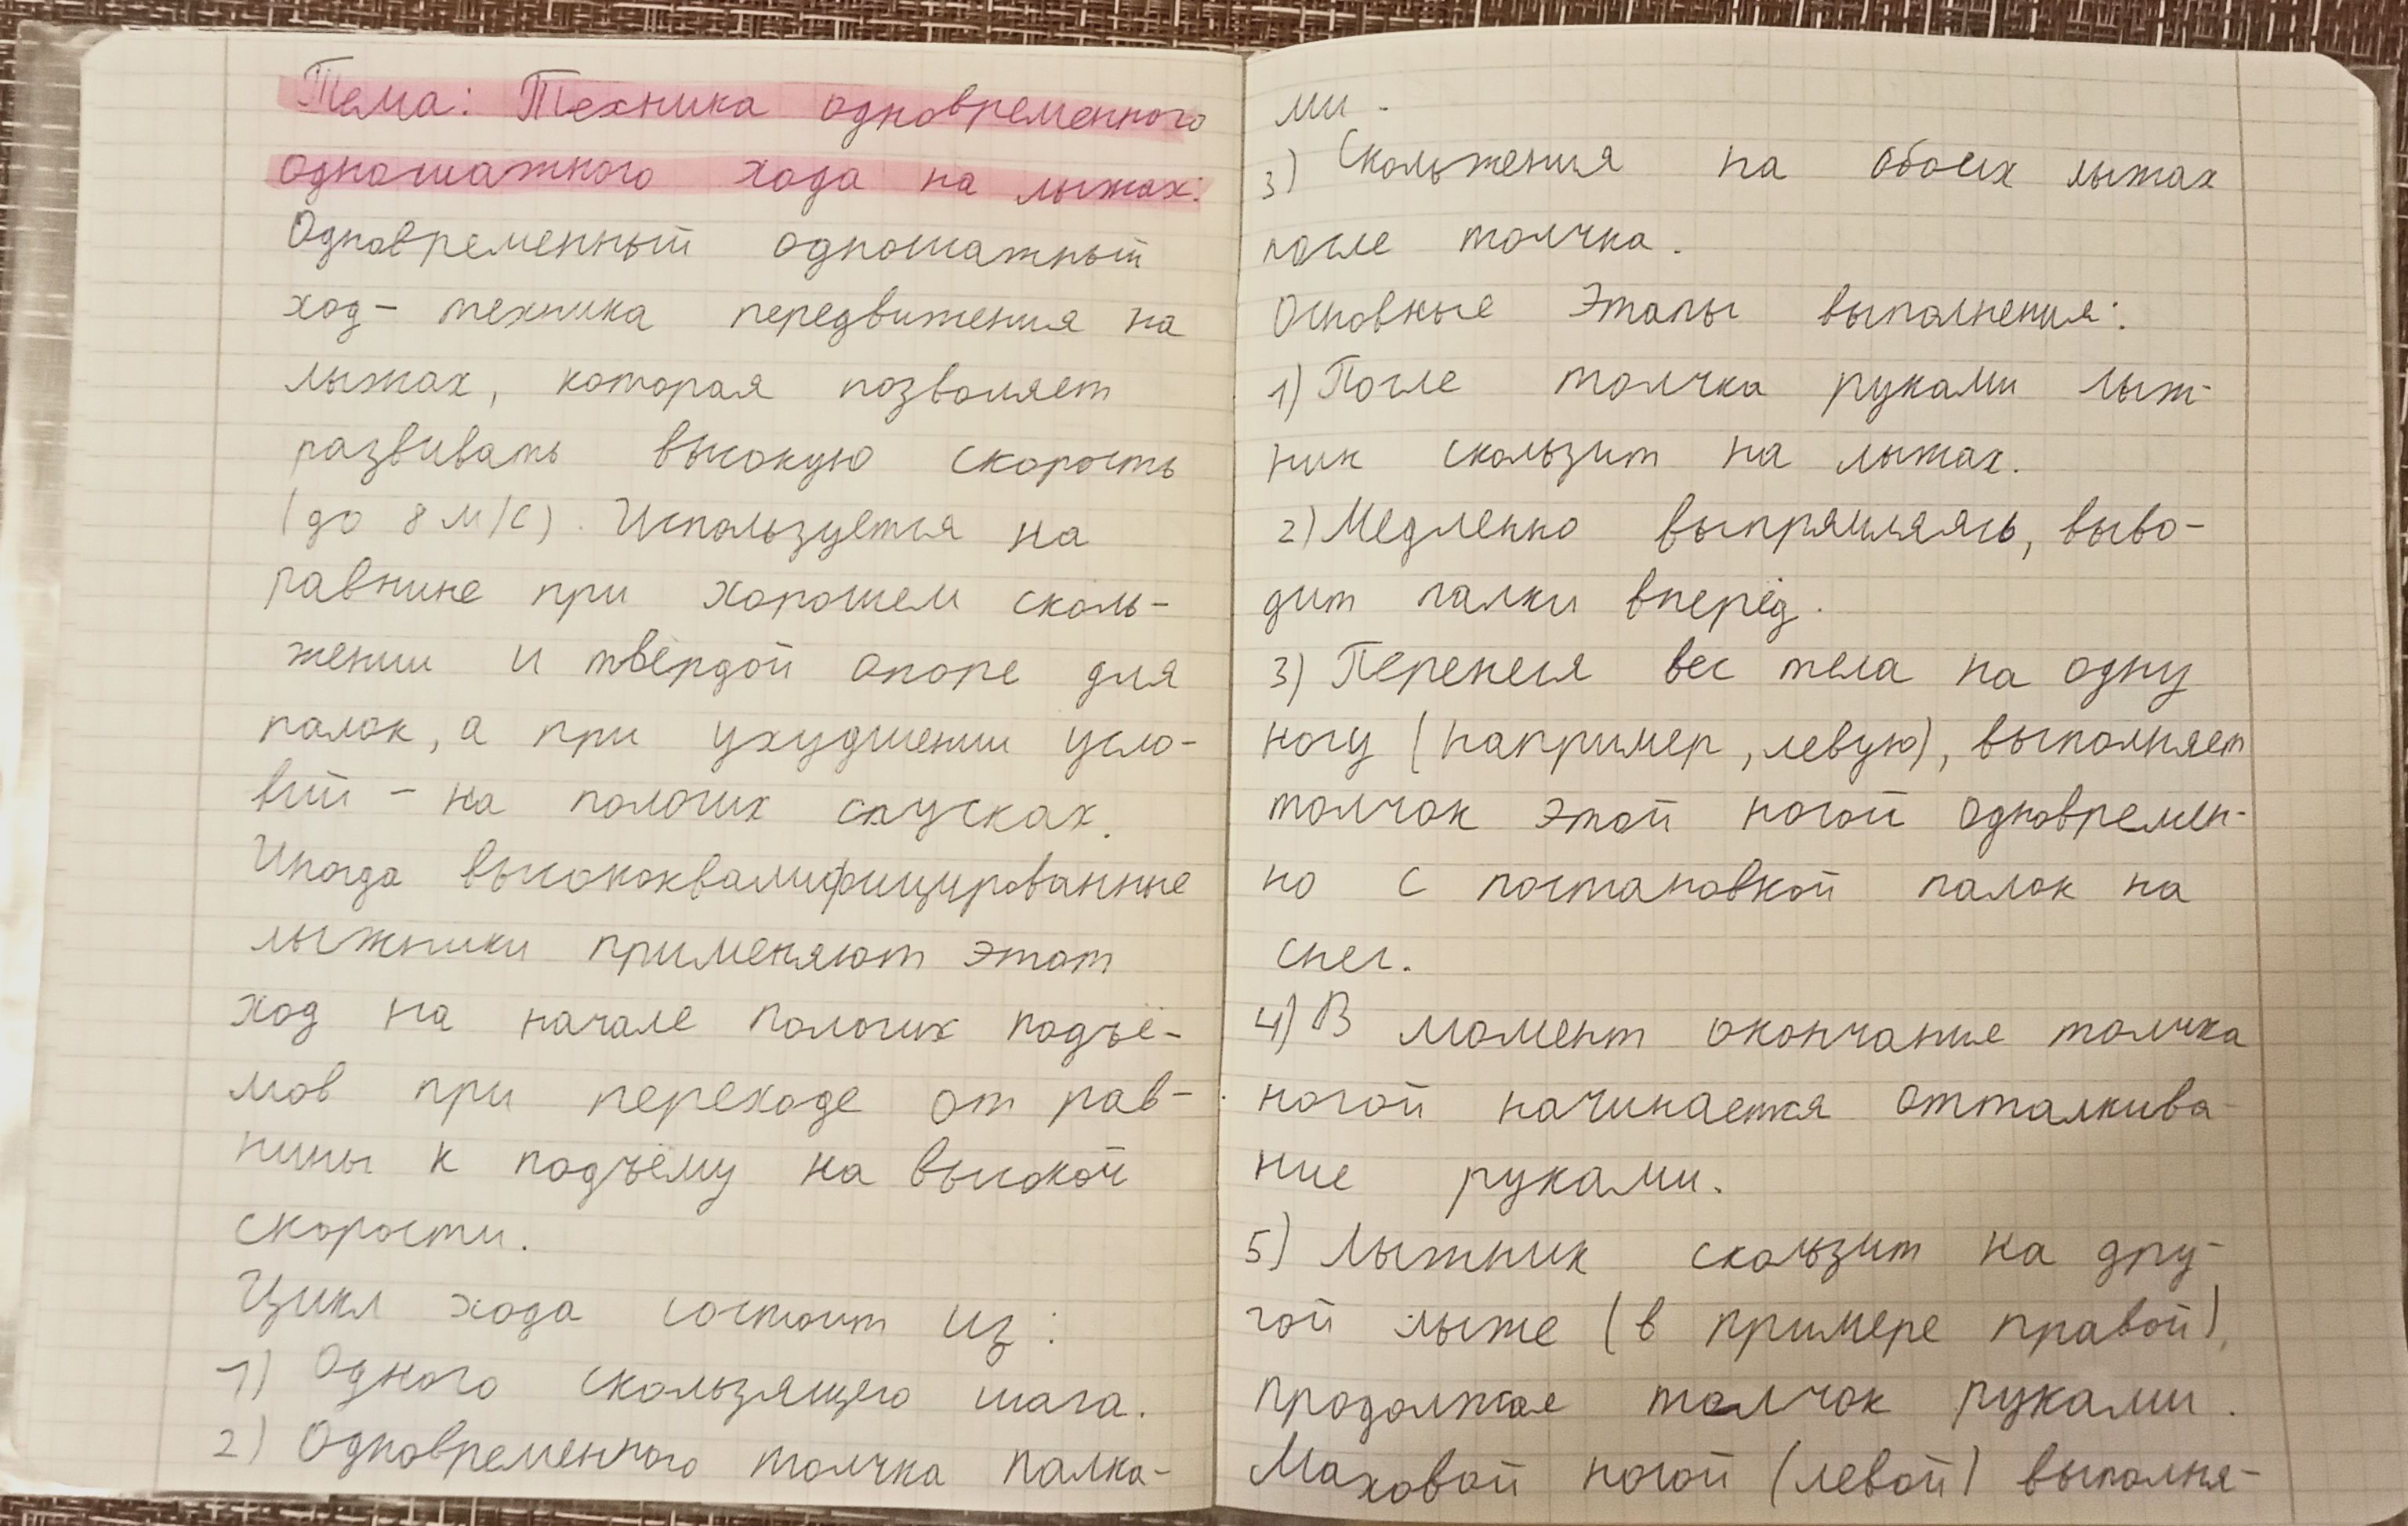 Тема: Техника одновременного
одношажного хода на лыжах:
Одновременный одношажный
ход - техника передвижения на
лыжах, которая позволяет
развивать высокую скорость
(до 8 м/с). Используется на
равнине при хорошем сколь-
жении и твёрдой опоре для
палок, а при ухудшении усло-
вий - на пологих спусках.
Иногда высококвалифицированные
лыжники применяют этот
ход на начале пологих подъё-
мов при переходе от рав-
нины к подъёму на высокой
скорости.
Цикл хода состоит из:
1) Одного скользящего шага.
2) Одновременного толчка палка-
ми.
3) Скольжения на обоих лыжах
после толчка.
Основные этапы выполнения:
1) После толчка руками лыж-
ник скользит на лыжах.
2) Медленно выпрямляясь, выво-
дит палки вперёд.
3) Перенеся вес тела на одну
ногу (например, левую), выполняет
толчок этой ногой одновремен-
но с постановкой палок на
снег.
4) В момент окончание толчка
ногой начинается отталкива-
ние руками.
5) Лыжник скользит на дру-
гой лыже (в примере правой),
продолжае толчок руками.
Маховой ногой (левой) выполня-